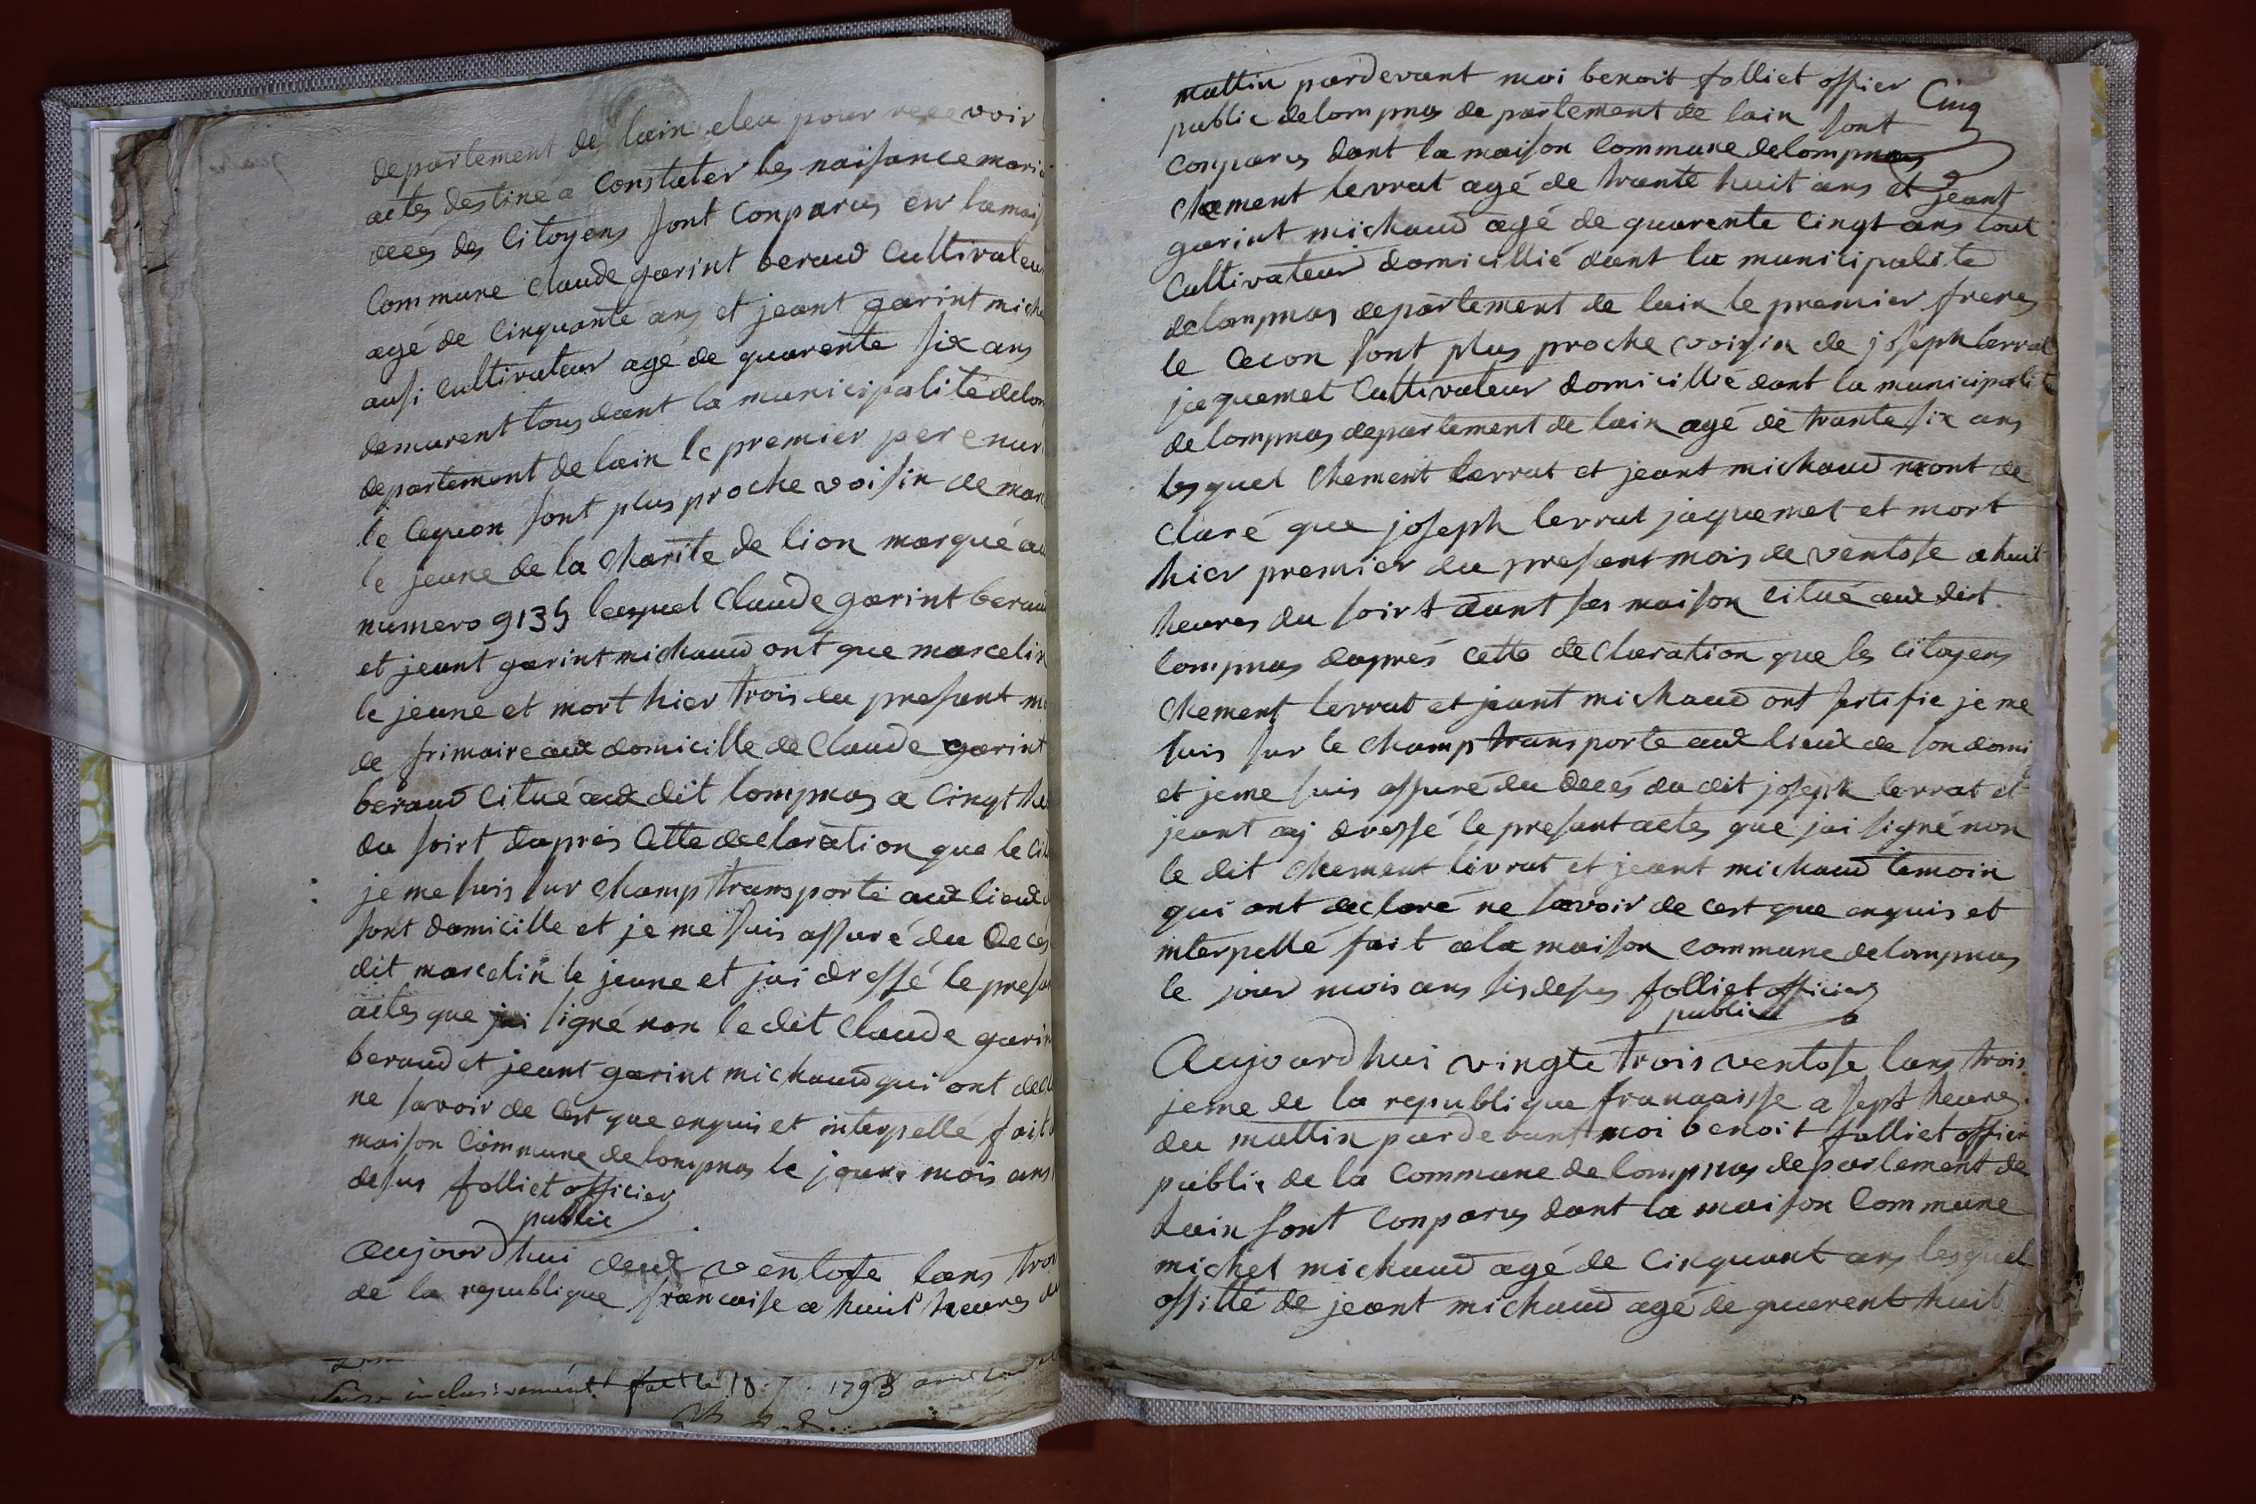 departement de lain eleu pour recevoir
actes destiné a Constater les naisance mari
decés des Citoyens sont Conparus en la mais
Commune Claude garint beraud Cultivateur
agé de Cinquante ans et jeant garint mich
ausi cultivateur agé de quarente six ans
demurent tous dant la municipalité delom
departement de lain le premier pere nur
le lequon sont plus proche voisin de mar
le jeune de la Charite de lion marqué au
numero 9135 lequel Claude garint beraud
et jeant garint michaud ont que marcelin
le jeune et mort hier trois du presant m
de frimaire aux domicille de Claude garint
beraud Citué aux dit lompnas a Cingt he
du soirt daprés Cette declaration que le Cit
je me suis sur champ transporté aux lieux
sont domicille et je me suis assuré du Decés
dit marcelin le jeune et jai dressé le presa
actes que jai signé non le dit Claude garin
beraud et jeant garint michaud qui ont decl
ne savoir de cest que enquis et interpellé fait
maison Commune de lompnas le jour mois ans
desus folliet officier
public
Aujourdhui deux ventose lans troi
de la republique francaise a huit heures du
inclusivement fait le 18 7 1793
mattin pardevant moi benoit folliet offier
Cinq
public delompnas departement de lain sont
conparus dant la maison Commune delompnas
Chement levrat agé de trante huit ans et jeant
garint michaud agé de quarente Cingt ans tout
Cultivateur domicillié dant la municipalite
delompnas departement de lain le premier freres
le Cecon sont plus proche voisin de joseph levrat
jaquemet Cultivateur domicillié dant la municipalite
delompnas departement de lain agé de trante six ans
lesquel Chement levrat et jeant michaud mont de
Claré que joseph levrat jaquemet et mort
hier premier du presant mois de ventose a huit
heures du soirt dant sas maison Citué aux dit
lompnas daprés cette declaration que les Citoyens
Chement levrat et jeant michaud ont sertifie je me
suis sur le Champ transporte aux lieux de son domi
et jeme suis assuré du decés du dit joseph levrat et
jeant aj dressé le presant actes que jai signé non
le dit Chement livrat et jeant michaud temoin
qui ont declaré ne savoir de cest que enquis et
interpellé fait a la maison commune delompnas
le jour mois ans sisdesus folliet officier
public
Aujourdhui vingte trois ventose lans trois
jeme de la republique francaisse a sept heures
du mattin pardevant moi benoit folliet offier
public de la Commune de lompnas departement de
lain sont Conparus dant la maison Commune
michel michaud agé de Cinquant ans lesquel
assité de jeant michaud agé de quarent huit